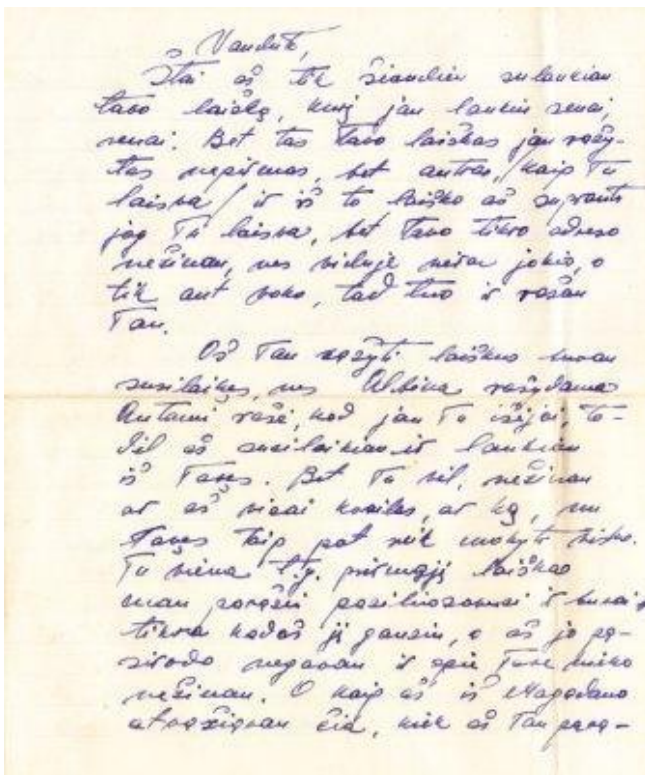 Vandute,
Štai aš tik šiandien sulaukiau
tavo laišką, kurį jau laukiu senai,
senai. Bet tas Tavo laiškas jau rašy-
tas nepirmas, bet antras, /kaip Tu
laisva/ ir iš to laiško aš suprantu
jog Tu laisva, bet Tavo tikro adreso
nežinau, nes viduje nėra jokio, o
tik ant voko, tad tuo ir rašau
Tau.
Aš Tau rašyti laiškus buvau
susilaikęs, nes Albina rašydama
Antanui rašė, kad jau Tu išėjai, to-
dėl aš susilaikiau ir laukiau
iš Tavęs. Bet Tu vėl, nežinau
ar aš visai kvailas, ar ką, nu
Tavęs taip pat reik mokytis visko.
Tu viena t.y. pirmąjį laišką
man parašei pasiliuosavusi ir buvai
tikra kad aš jį gausiu, o aš jo pa-
sirodo negavau ir apie Tave nieko
nežinau. O kaip aš iš Magadano
atvažiavau čia, kiek aš Tau para-